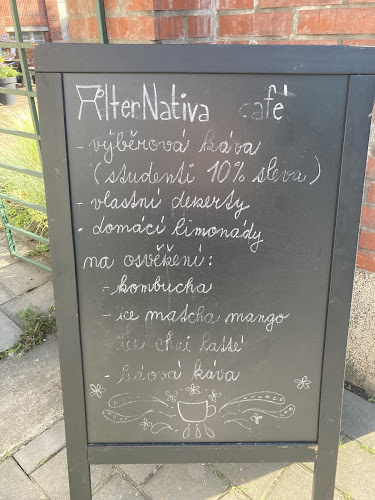 AlterNativa café
- výběrová káva
(studenti 10% sleva)
- vlastní dezerty
- domácí limonády
na osvěžení:
- kombucha
- ice matcha mango
ice chai latté
- ledová káva